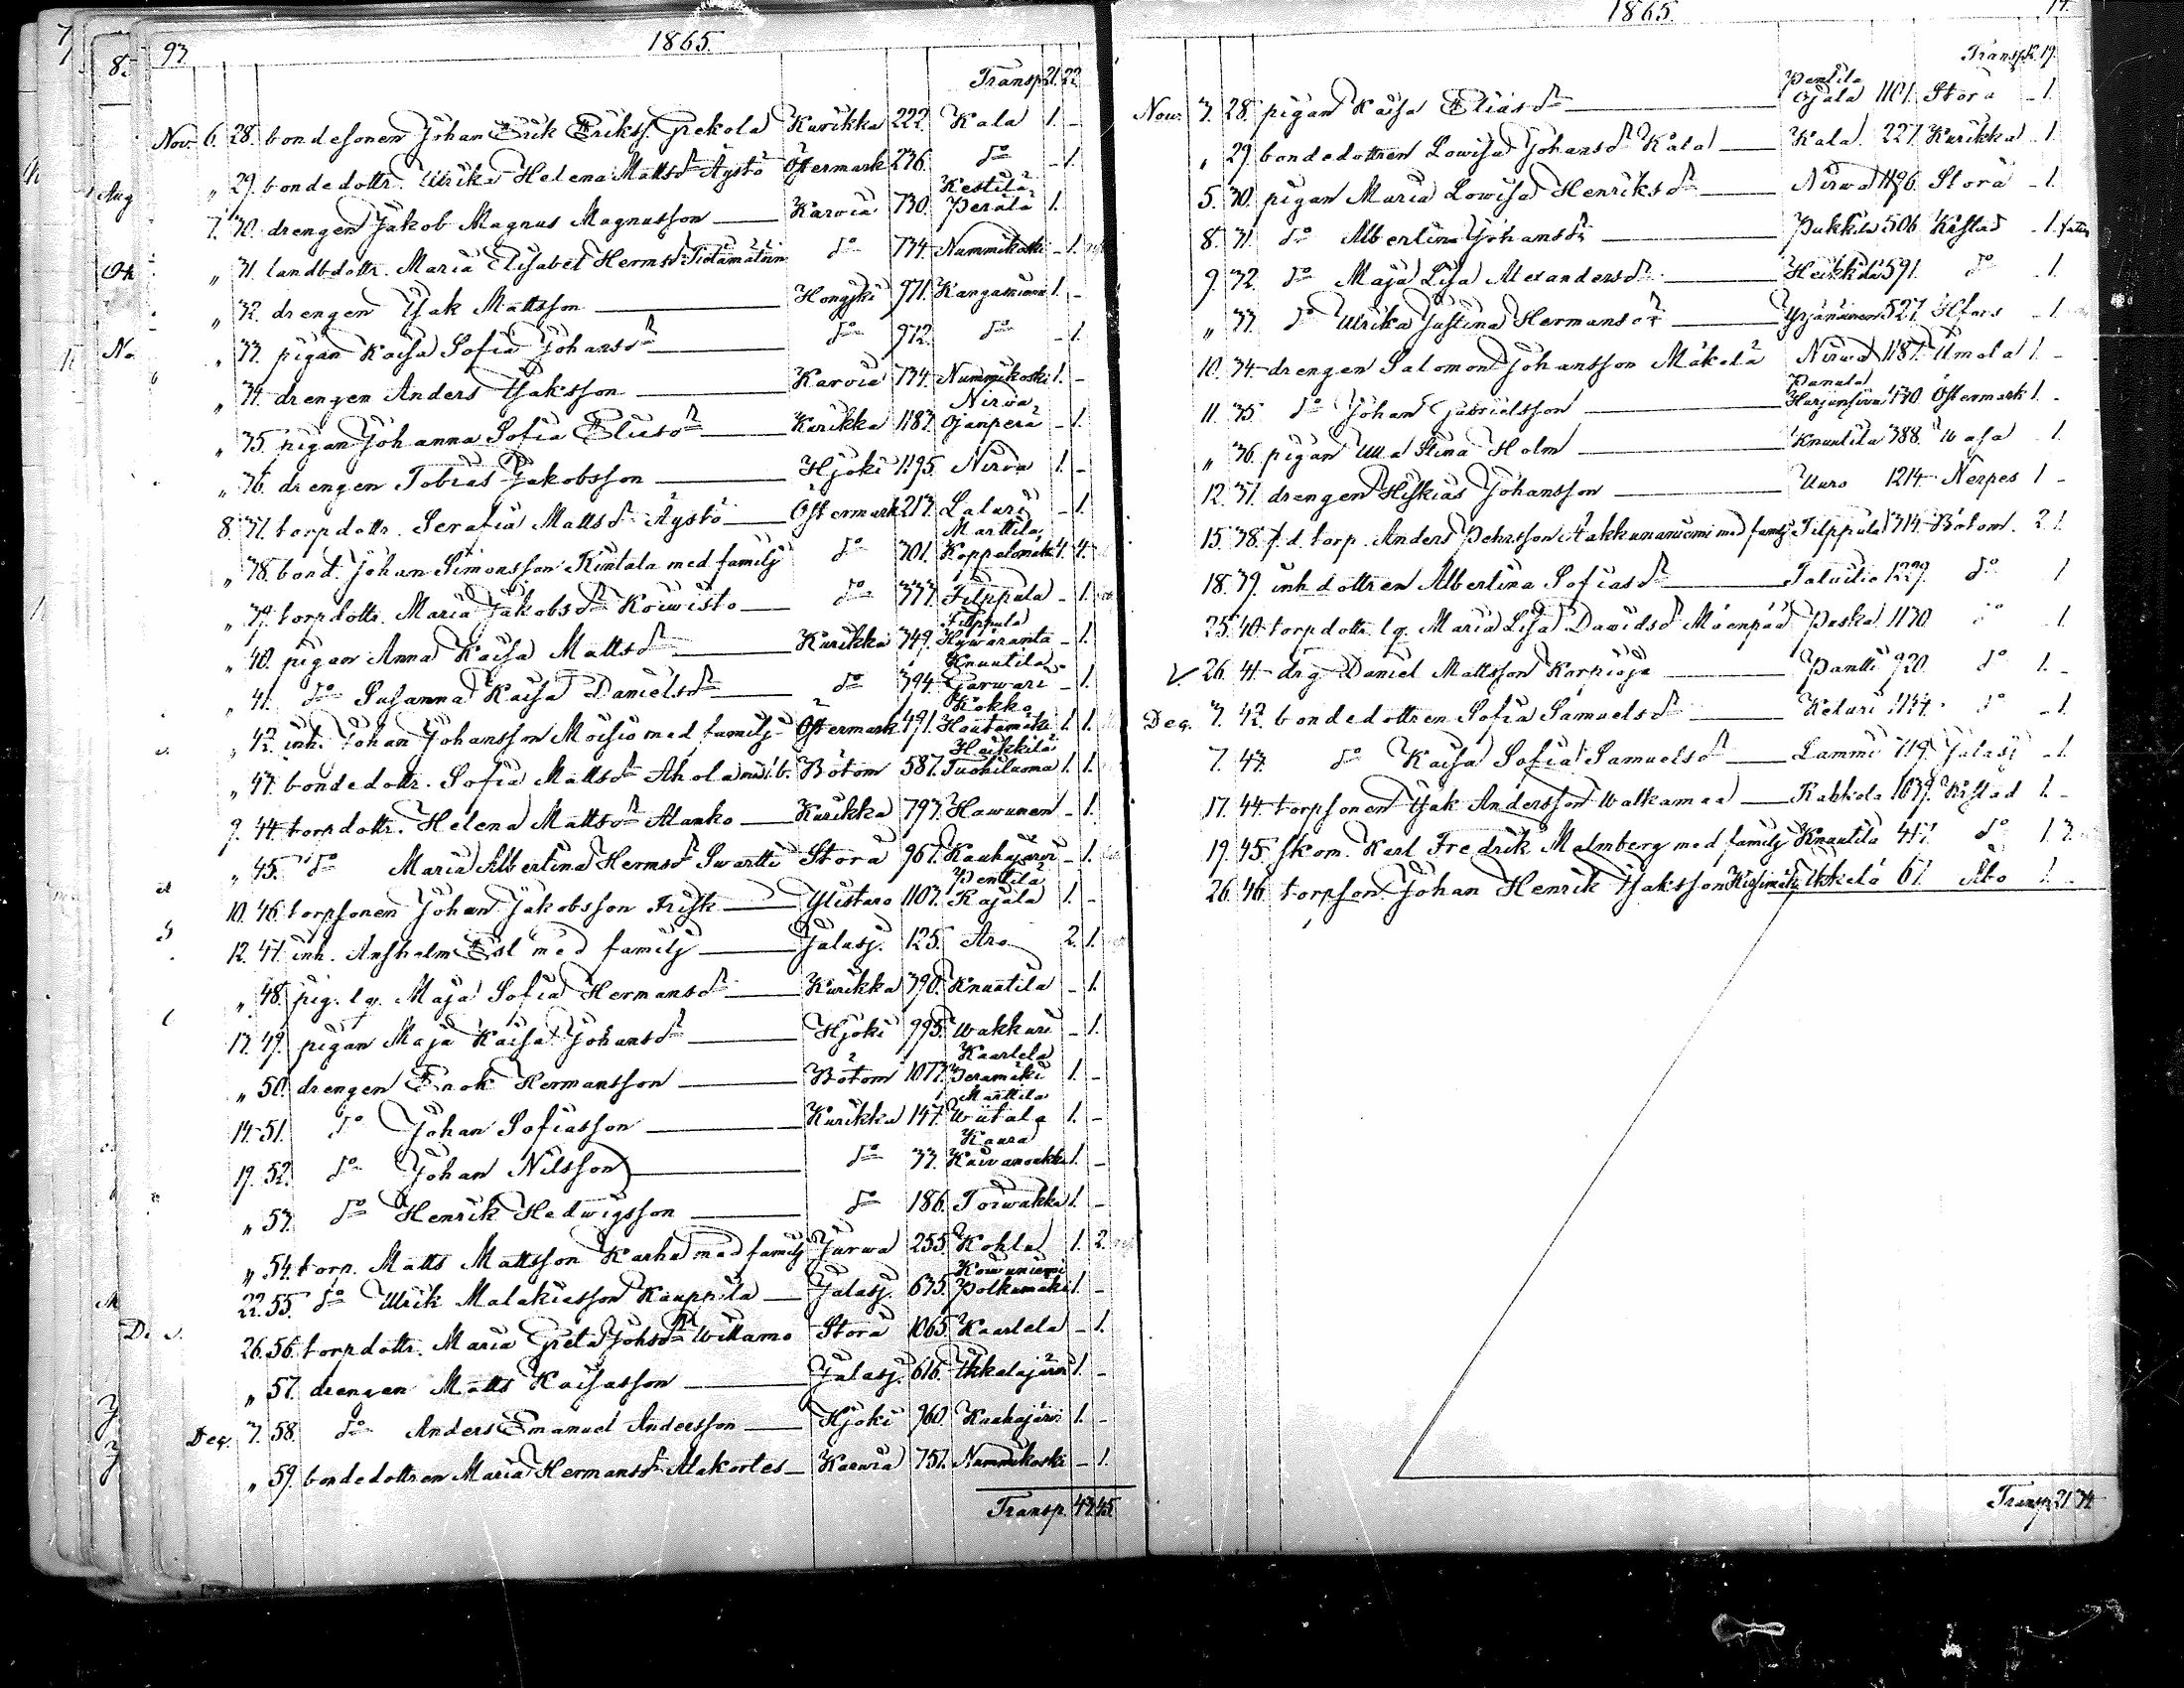 93.
1865.
Transp. 21. 22.
Nov. 6. 28. bondesonen Johan Erik Erikss. Grekola Kurikka 222. Kala 1. -
" 29. bondedottr. Ulrika Helena Mattsdr Äystö Östermark 236. do - 1.
Kestilä
7. 30. drengen Jakob Magnus Magnusson Karvia 730. Perälä 1.
" 31. landbdottr. Maria Elisabet Hermsdr do 734. Nummikoski - 1.
" 32. drengen Isak Mattsson Hongjki 971. Kangasniemi 1. -
" 33. pigan Kaisa Sofia Johansdr do 972. do - 1.
" 34. drengen Anders Isaksson Karvia 734. Nummikoski 1. -
Nirva
" 35. pigan Johanna Sofia Eliasdr Kurikka 1187. Ojanperä - 1.
" 36. drengen Tobias Jakobsson Hjoki 1195. Nirva 1. -
8. 37. torpdottr. Serafia Mattsdr Äystö Östermark 217. Laluri - 1.
Marttila
" 38. bond. Johan Simonsson Kintala med familj do 301. Koppelomäki 4. 4.
" 39. torpdottr. Maria Jakobsdr Koiwisto do 377. Filppula - 1.
Filppula
" 40. pigan Anna Kaisa Mattsdr Kurikka 349. Hywäranta - 1.
Knuutila
" 41. do Susanna Kaisa Danielsdr do 394. Garwari - 1.
Kokko
" 42. inh. Johan Johansson Moisio med familj Östermark 491. Hautamäki 1. 1.
Heikkilä
" 43. bondedottr. Sofia Mattsdr Ahola med 1 b. Bötom 587. Tuohiluoma 1. 1.
9. 44. torpdottr. Helena Mattsdr Alanko Kurikka 793. Hawunen - 1.
" 45. do Maria Albertina Hermsdr Swartti Storå 967. Kauhajärvi - 1.
Penttilä
10. 46. torpsonen Johan Jakobsson Frisk Ylistaro 1103. Rajala 1. -
12. 47. inh. Anshelm Esl med familj Jalasj. 125. Aro 2. 1.
" 48. pig. lg. Maja Sofia Hermansdr Kurikka 390. Knuutila - 1.
13. 49. pigan Maja Kaisa Johansdr Hjoki 995. Wakkuri - 1.
Kaarlela
" 50. drengen Enok Hermansson Bötom 1077. Peramäki 1. -
Marttila
14. 51. do Johan Sofiasson Kurikka 147. Wiitala 1. -
Kaura
19. 52. do Johan Nilsson do 33. 1. -
" 53. do Henrik Hedwigsson do 186. Torwakka 1. -
" 54. torp. Matts Mattsson Karhu med familj Jurwa 255. Kohla 1. 2.
Koiwuniemi
22. 55. do Ulrik Malakiasson Kauppila Jalasj. 675. Polkumäki 1. -
26. 56. torpdottr. Maria Greta Johsdr Willamo Storå 1065. Kaarlela - 1.
" 57. drengen Matts Kaisasson Jalasj. 616. Ikkelajärvi 1. -
Dec. 3. 58. do Anders Emanuel Andersson Hjoki 960. Kauhajärvi 1. -
" 59. bondedottren Maria Hermansdr Alakortes Karvia 751. Nummikoski - 1.
Transp. 43. 45.
1865.
Transp. 12. 19.
Pentila
Nov. 3. 28. pigan Kaisa Eliasdr Ojala 1101. Storå - 1.
" 29. bondedottren Lowisa Johansdr Kala Kala 227. Kurikka - 1.
5. 30. pigan Maria Lowisa Henriksdr Nirwa 1196. Storå - 1.
8. 31. do Albertina Johansdr Pukkila 506. Kstad - 1.
9. 32. do Maja Lisa Alexandersdr Heikkilä 591. do - 1.
" 33. do Ulrika Justina Hermansdr Yrjänänen 527. Hfors - 1.
10. 34. drengen Salomon Johansson Mäkelä Nirwa 1187. Umola 1. -
Panula
11. 35. do Johan Gabrielsson 170. Östermark 1. -
" 36. pigan Ulla Stina Holm Knuutila 388. Wasa - 1.
12. 37. drengen Hiskias Johansson Uuro 1214. Nerpes 1 -
15. 38. f.d. torp. Anders Pehrsson med familj Filppula 314. Bötom. 2. 1.
18. 39. inhdottren Albertina Sofiasdr 1229. do 1
25. 40. torpdottr. lg. Maria Lisa Davidsdr Mäenpää Peska 1130 do - 1
V. 26. 41. drg. Daniel Mattsson Korpioja Pantti 920. do 1. -
Dec. 3. 42. bondedottren Sofia Samuelsdr Keturi 1134. do - 1.
7. 43. do Kaisa Sofia Samuelsdr Lammi 719. Jalasj - 1.
17. 44. torpsonen Isak Andersson Walkamaa Rahkola 1039. Kstad 1. -
19. 45. skom. Karl Fredrik Malmberg med familj Knuutila 417. do 1 3
26. 46. torpson. Johan Henrik Isaksson Ikkelä 67. Åbo 1. -
Transp. 21 34